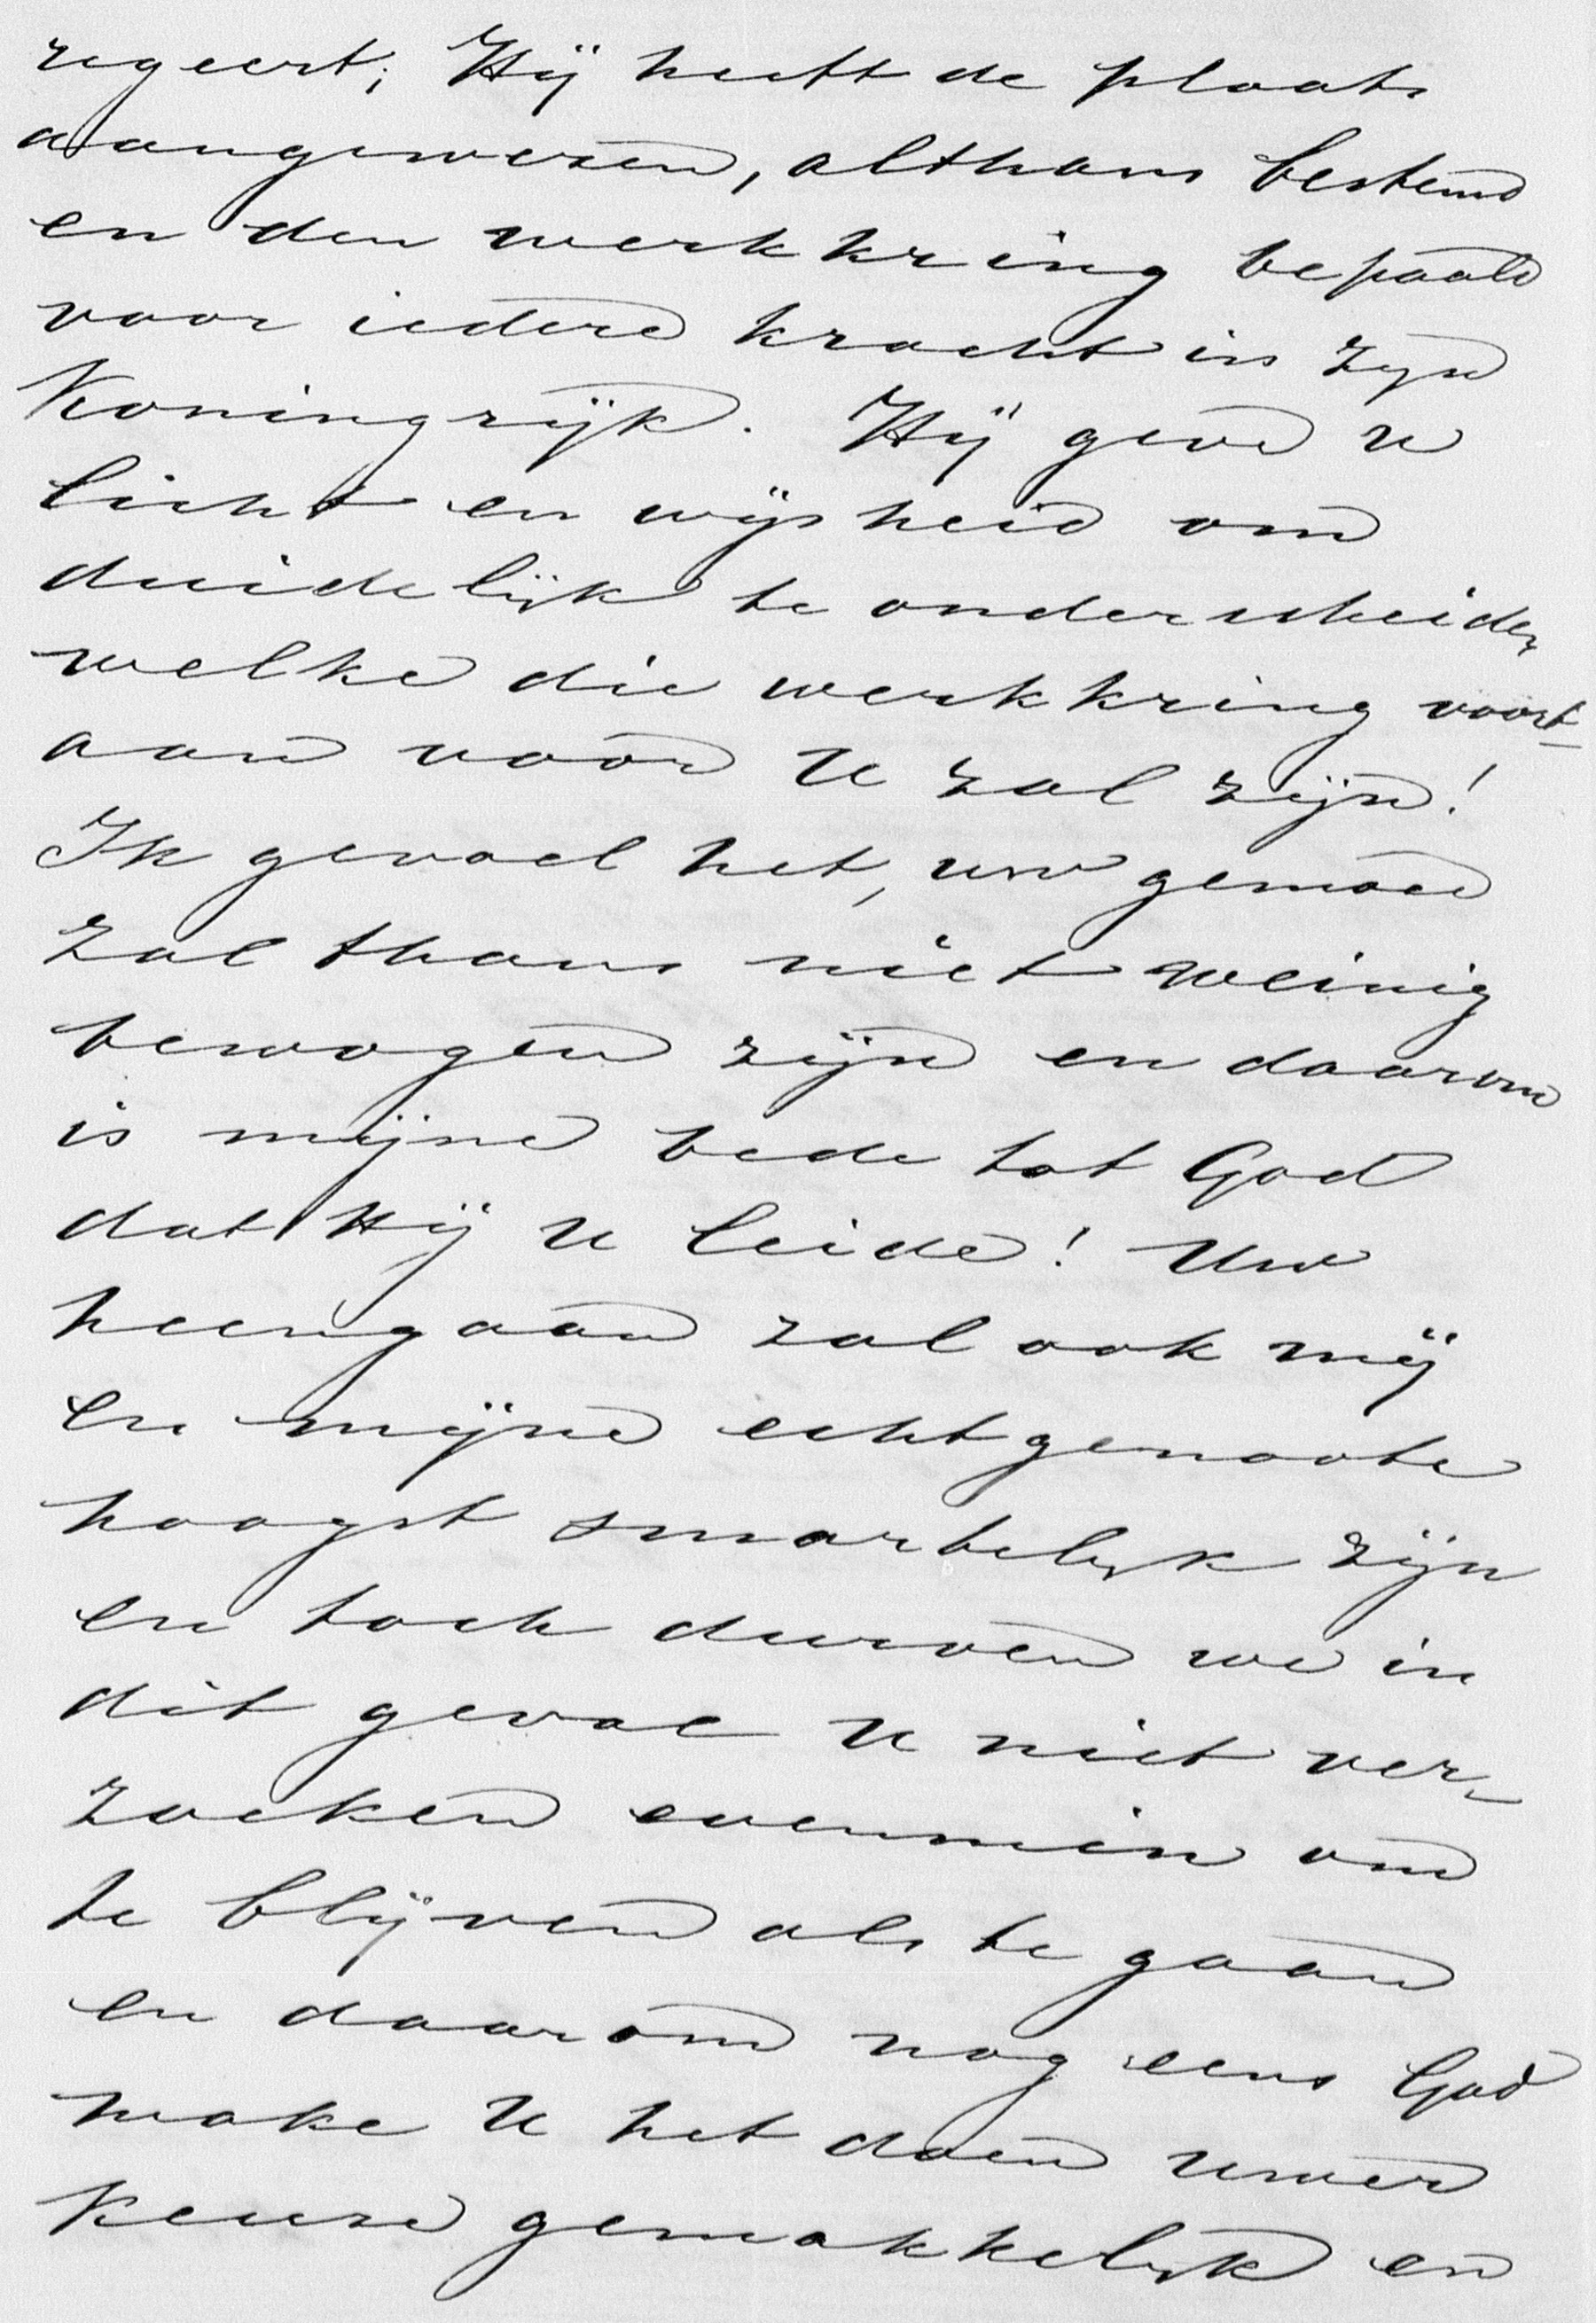 regeert; Hij heeft de plaats
aangewezen, althans bestemd
en den werkkring bepaald
voor iedere kracht in zijn
Koningrijk. Hij geve u
licht en wijsheid om
duidelijk te onderscheiden
welke die werkkring voort-
aan voor U zal zijn!
Ik gevoel het, uw gemoed
zal thans niet weinig
bewogen zijn en daarom
is mijne bede tot God
dat Hij U leide! Uw
heengaan zal ook mij
en mijne echtgenoote
hoogst smartelijk zijn
en toch durven we in
dit geval U niet ver-
zoeken evenmin om
te blijven als te gaan
en daarom nog eens God
make U het doen uwer
keuze gemakkelijk en